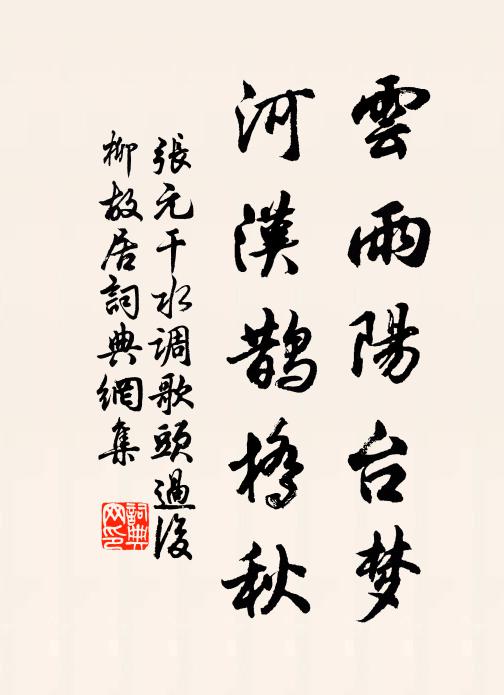 雲雨陽台梦
河漢鵲橋秋
張元干水调歌頭過後
柳故居詞典網集
詞典
网印